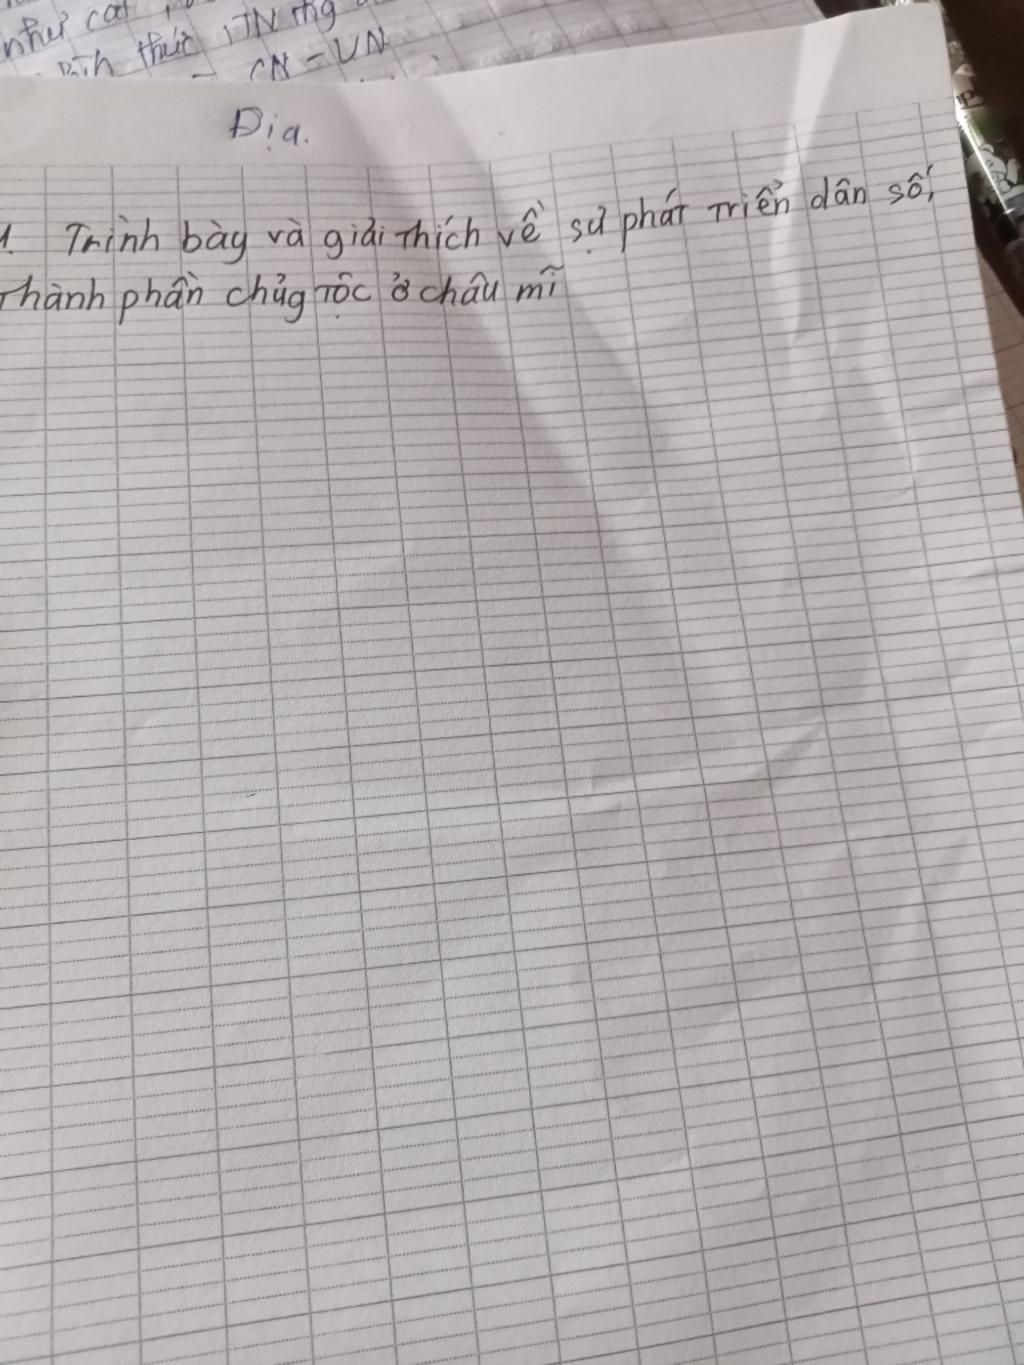 như cat
thức TN mg
CN - VN
Địa.
1. Trình bày và giải thích về sự phát triển dân số,
thành phần chủg tộc ở châu mĩ